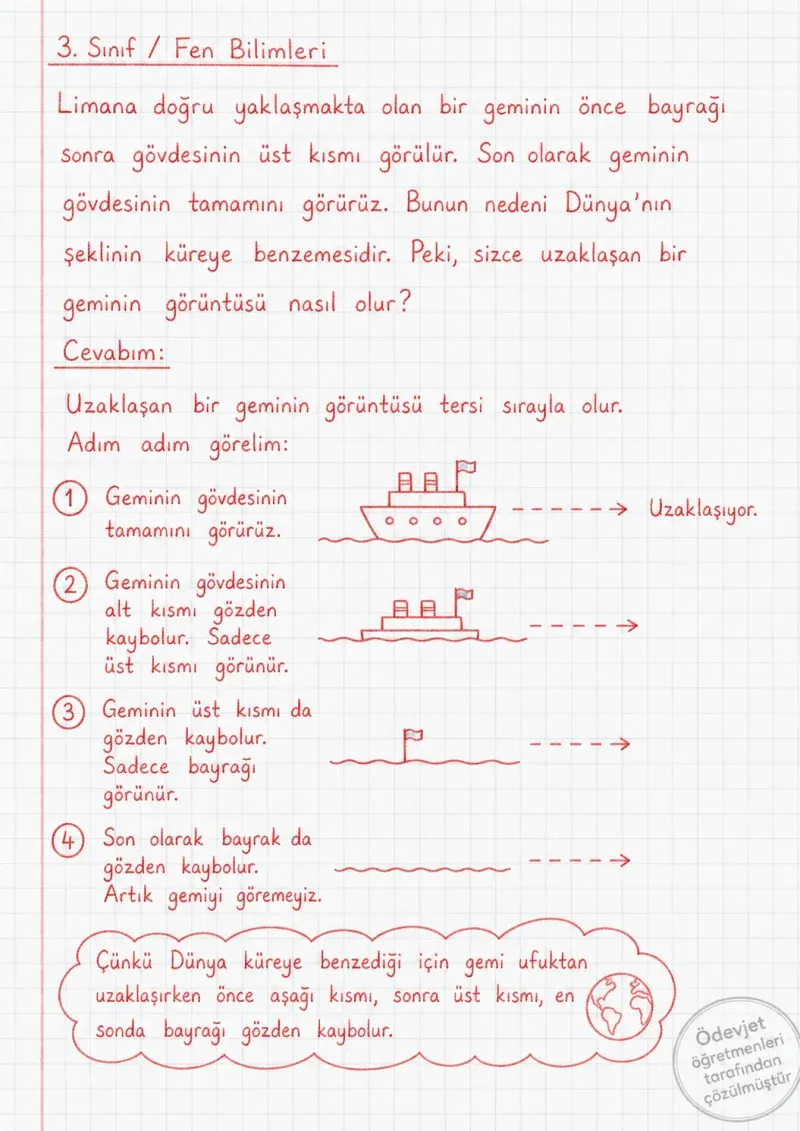 3. Sınıf / Fen Bilimleri
Limana doğru yaklaşmakta olan bir geminin önce bayrağı
sonra gövdesinin üst kısmı görülür. Son olarak geminin
gövdesinin tamamını görürüz. Bunun nedeni Dünya'nın
şeklinin küreye benzemesidir. Peki, sizce uzaklaşan bir
geminin görüntüsü nasıl olur?
Cevabım:
Uzaklaşan bir geminin görüntüsü tersi sırayla olur.
Adım adım görelim:
1 Geminin gövdesinin
tamamını görürüz.
Uzaklaşıyor.
2 Geminin gövdesinin
alt kısmı gözden
kaybolur. Sadece
üst kısmı görünür.
3 Geminin üst kısmı da
gözden kaybolur.
Sadece bayrağı
görünür.
4 Son olarak bayrak da
gözden kaybolur.
Artık gemiyi göremeyiz.
Çünkü Dünya küreye benzediği için gemi ufuktan
uzaklaşırken önce aşağı kısmı, sonra üst kısmı, en
sonda bayrağı gözden kaybolur.
Ödevjet
öğretmenleri
tarafından
çözülmüştür